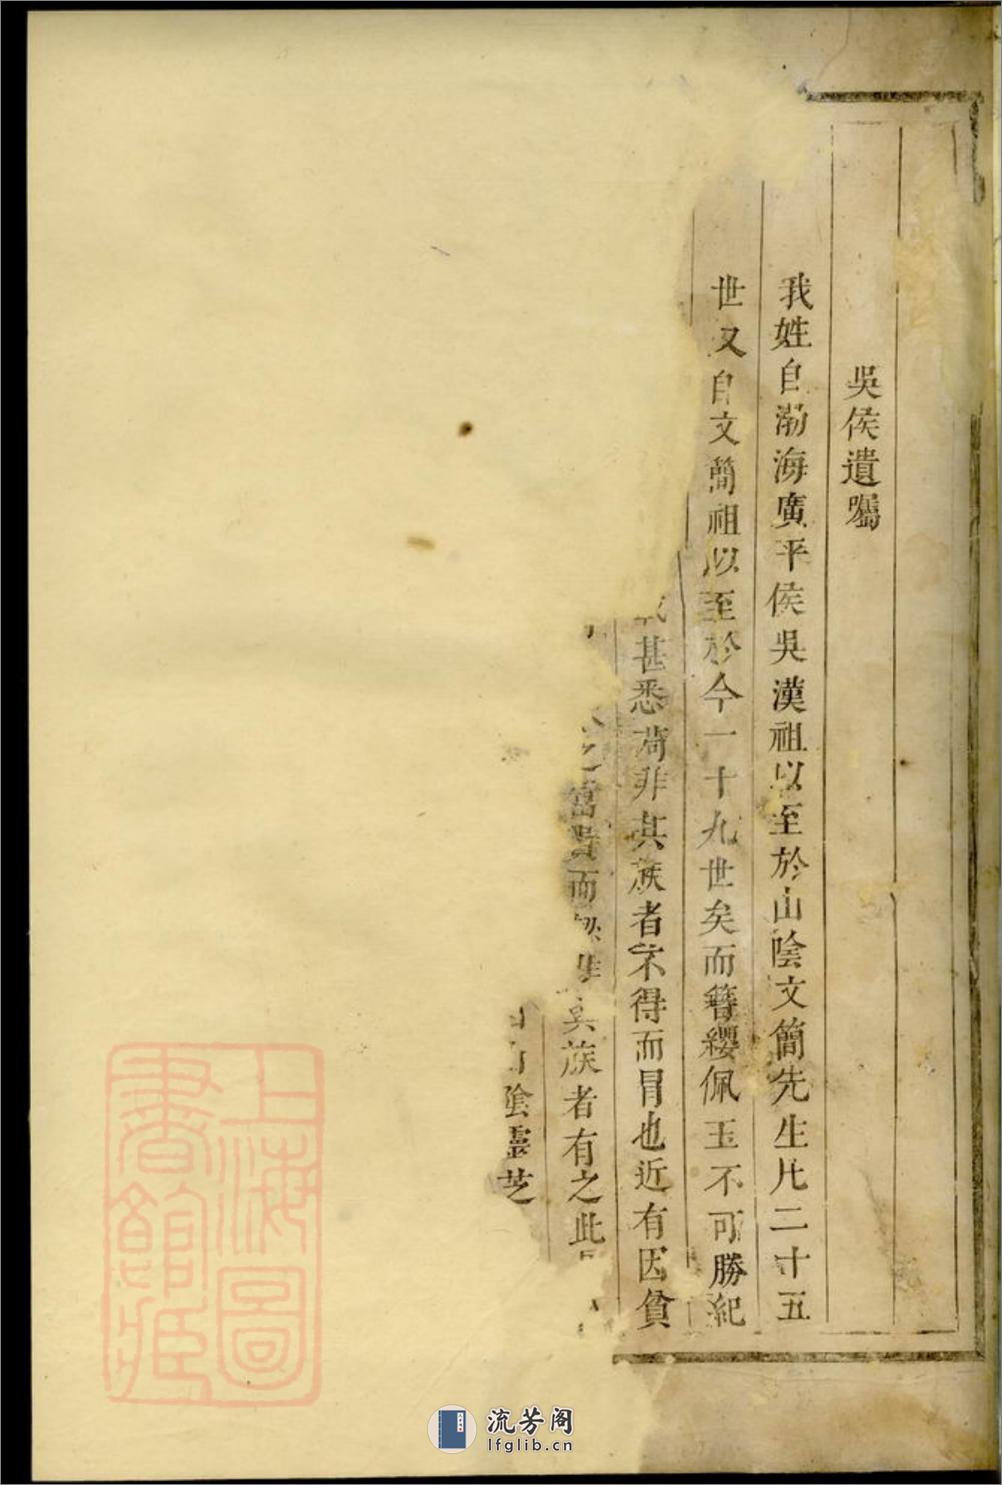 吳侯遺囑
我姓自渤海廣平侯吳漢祖以至於山陰文簡先生凡二十五
世又自文簡祖以至於今一十九世矣而簪纓佩玉不可勝紀
甚悉苟非其族者不得而冒也近有因貧
之富貴而 族者有之此
陰靈芝
上海圖書館藏
流芳阁
lfglib.cn